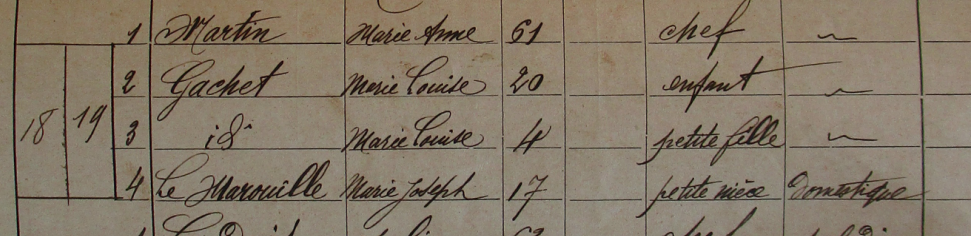 1 Martin Marie Anne 61 chef ~
2 Gachet Marie Louise 20 enfant ~
18 19 3 id Marie Louise 4 petite fille ~
4 Le Marouille Marie Joseph 17 petite nièce Domestique